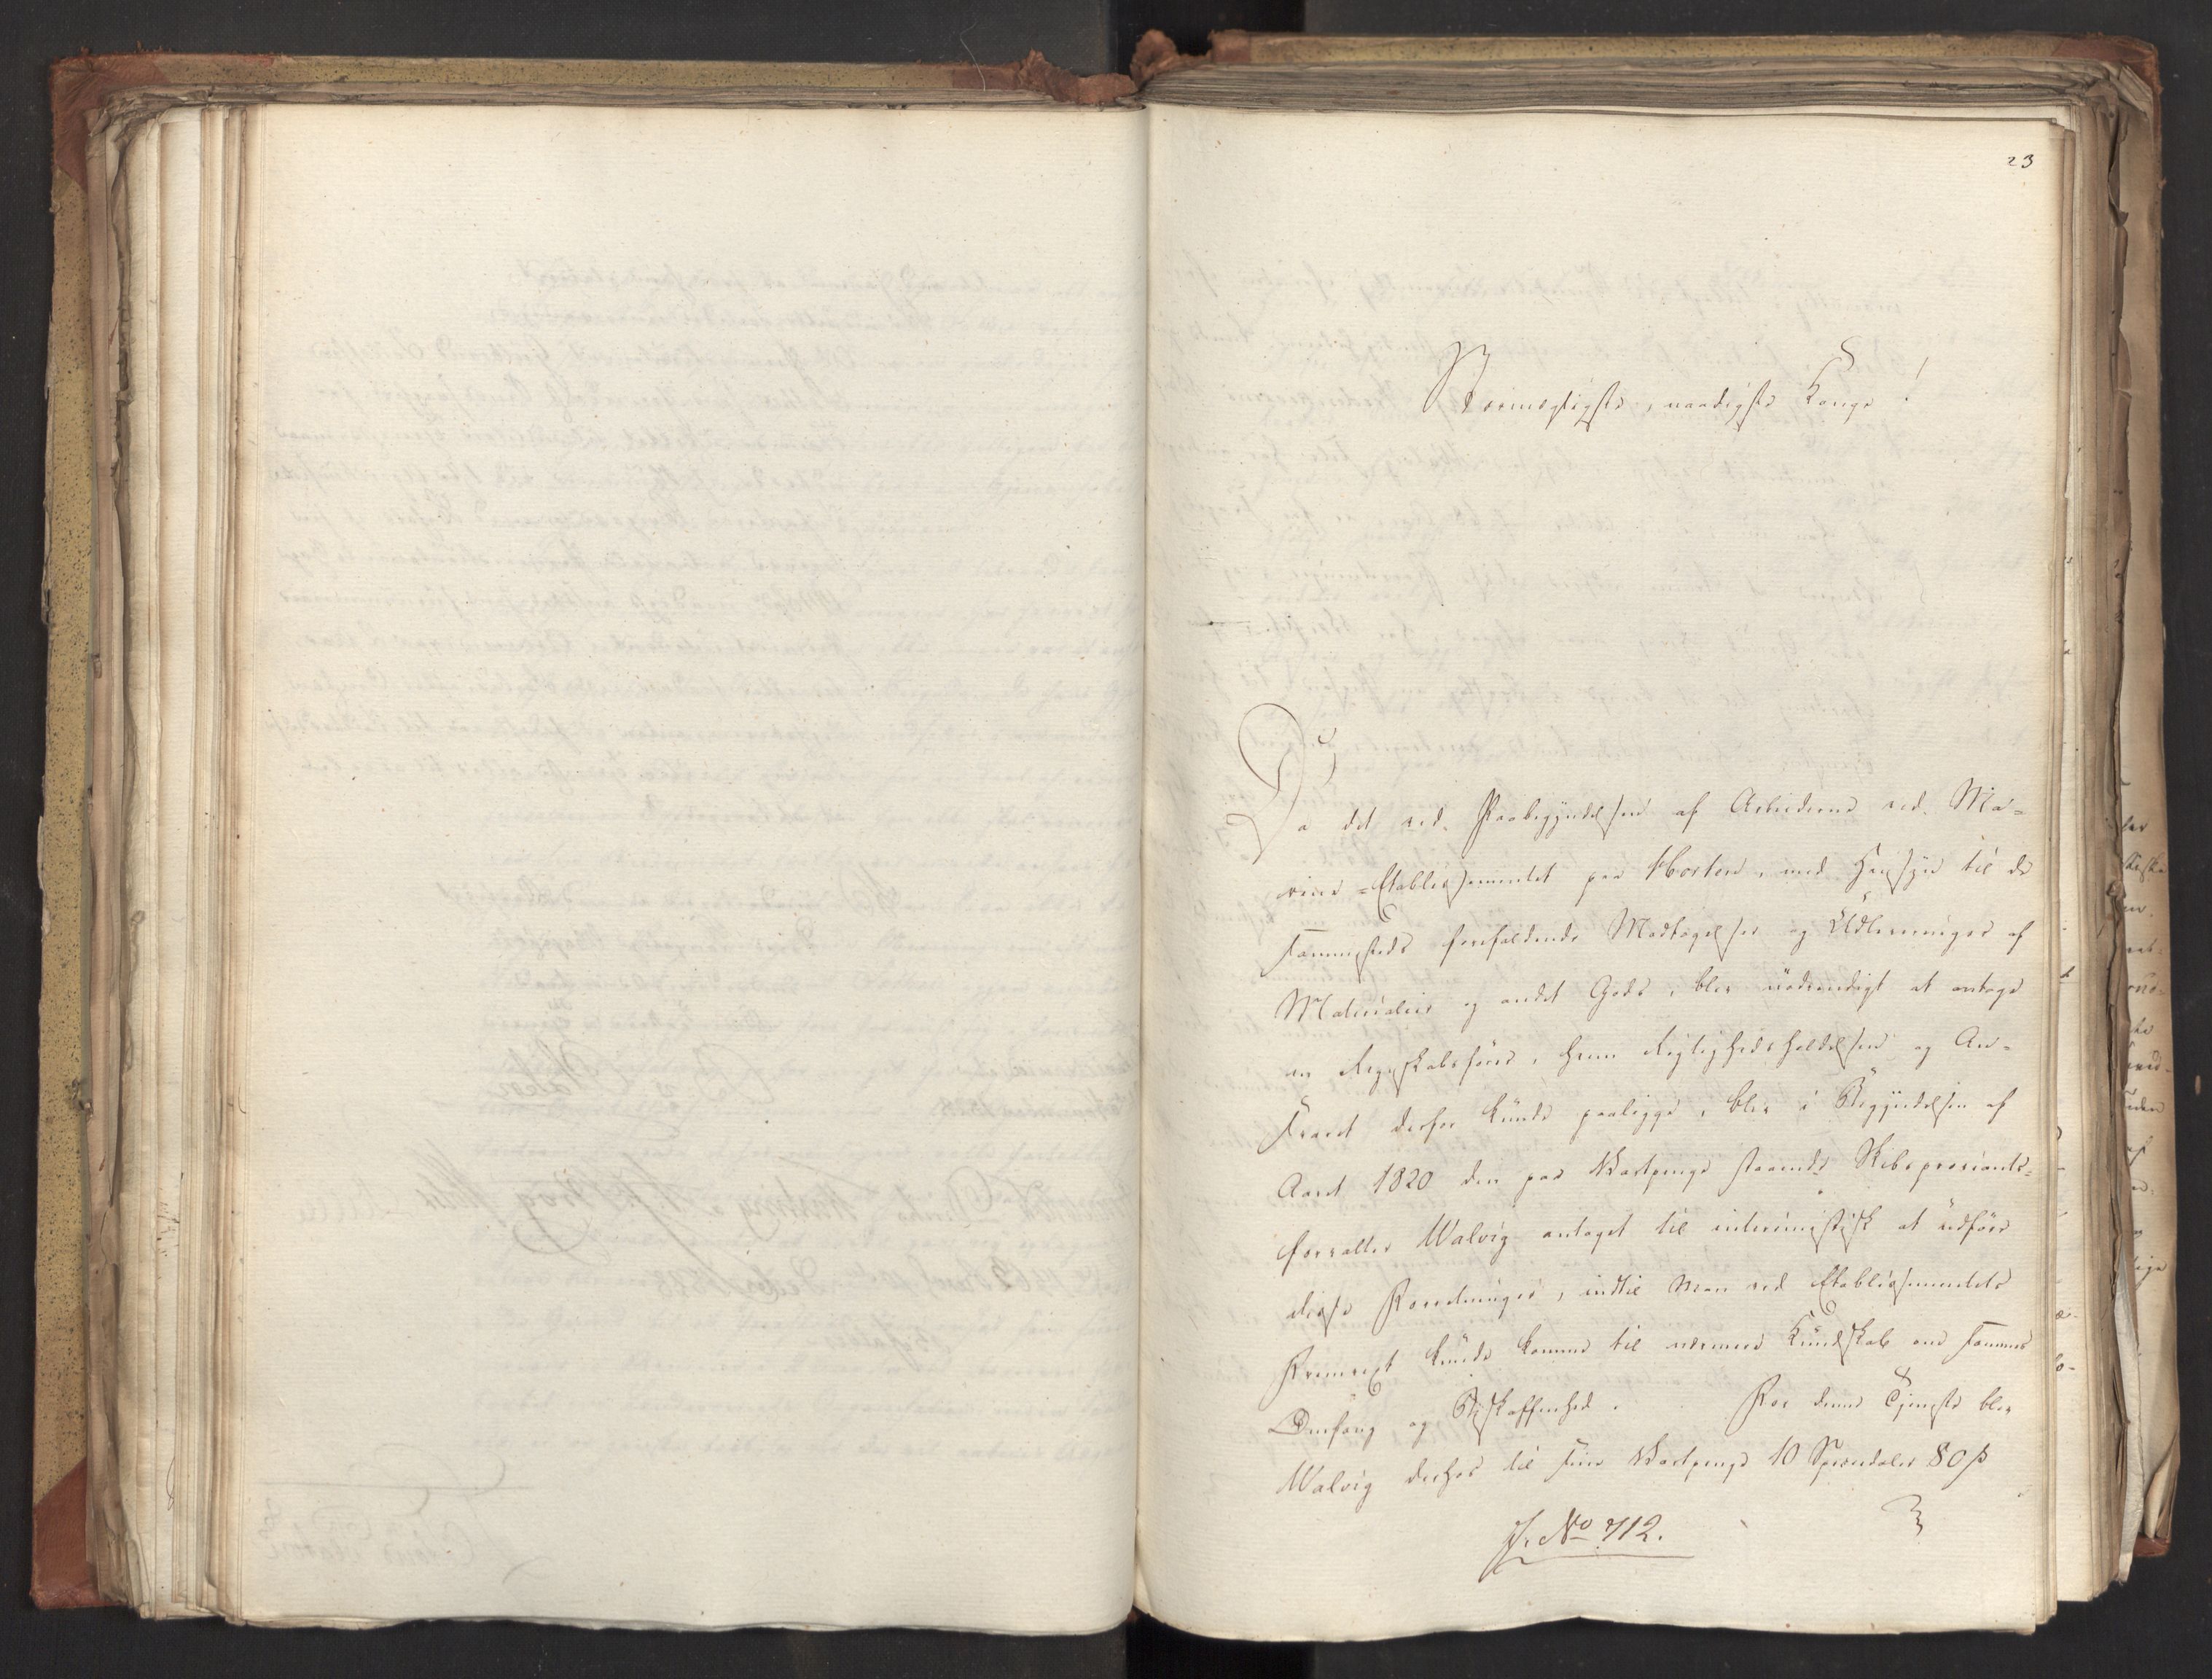 23
Stormægtigste, naadigste Konge!
Da det ved Paabegyndelsen af Arbeiderne ved Ma-
rine-Etablissementet paa Horten, med Hensyn til de
sammesteds forefaldende Modtagelser og Udleveringer af
Materialier og andet Gods, blev nødvendigt at antage
en Regnskabsfører, hvem Rigtighedsholdelsen og An-
svaret derfor kunde paaligge, blev i Begyndelsen af
Aaret 1820 den paa Vartpenge staaende Skibsproviants-
forvalter Walvig antaget til interimistisk at udføre
disse Forretninger, indtil man ved Etablissementets
Fremvext kunde komme til nærmere Kundskab om sammes
Omfang og Beskaffenhed. For denne Tjeneste blev
Walvig derhos til sine Vartpenge 10 Speciedaler 80 ß
J. No 712.